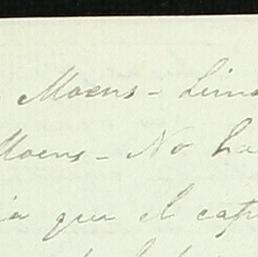 Moens - Lima
Moens - No ha
que el capi